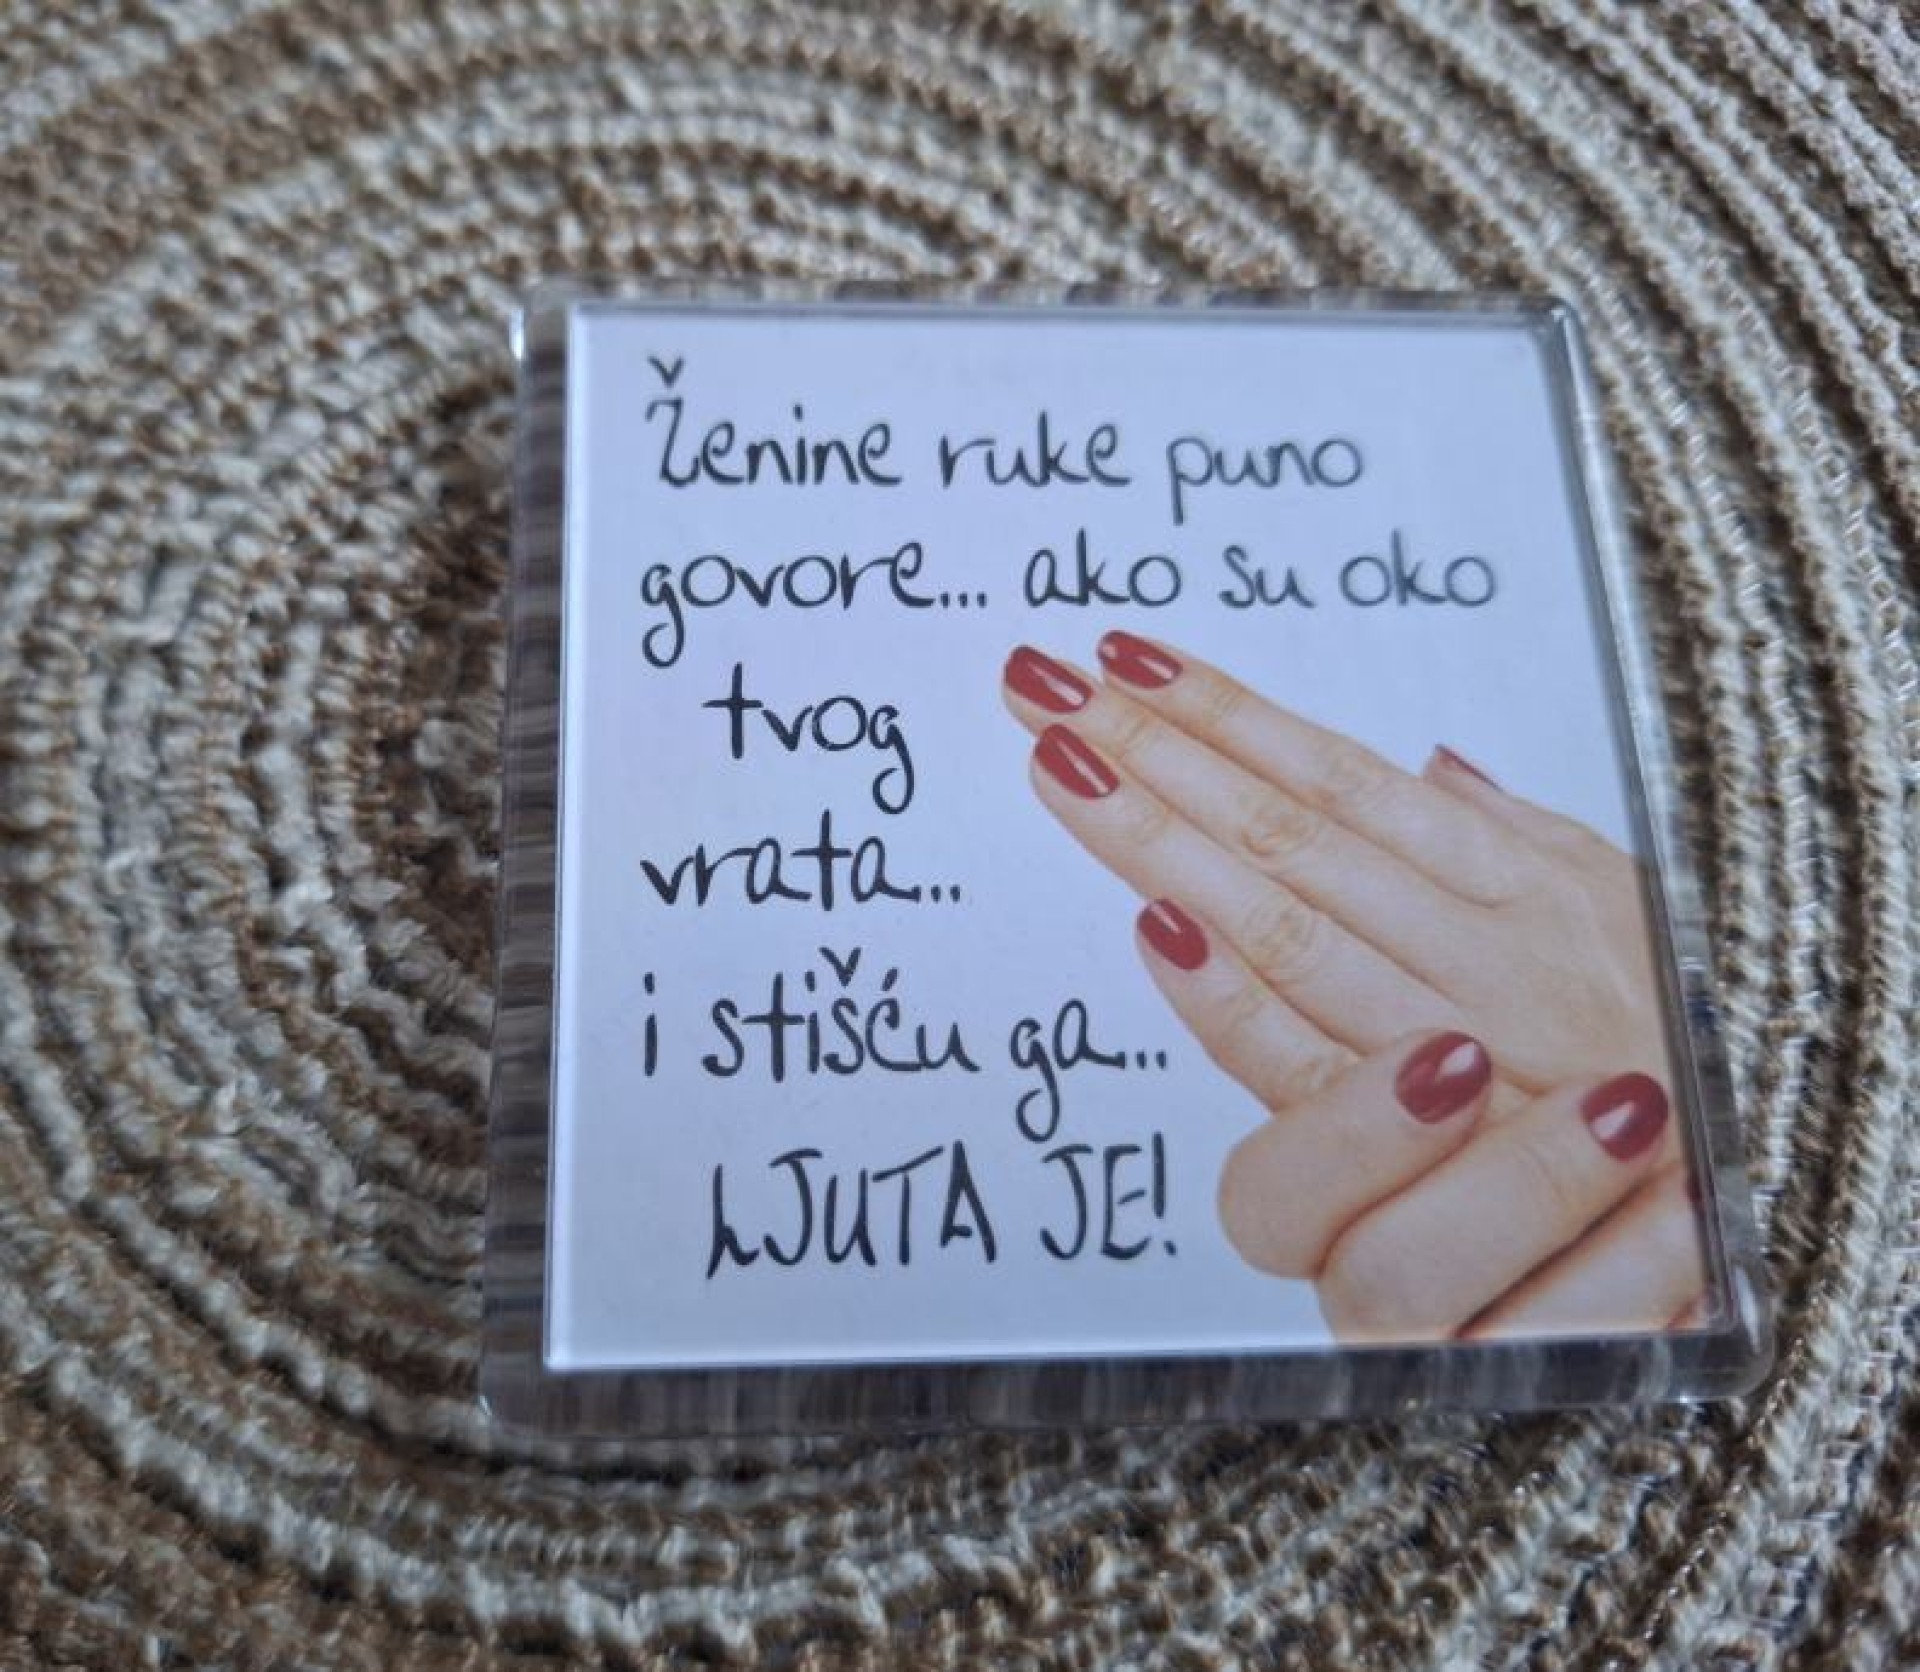 Ženine ruke puno
govore... ako su oko
tvog
vrata..
i stišću ga...
LJUTA JE!